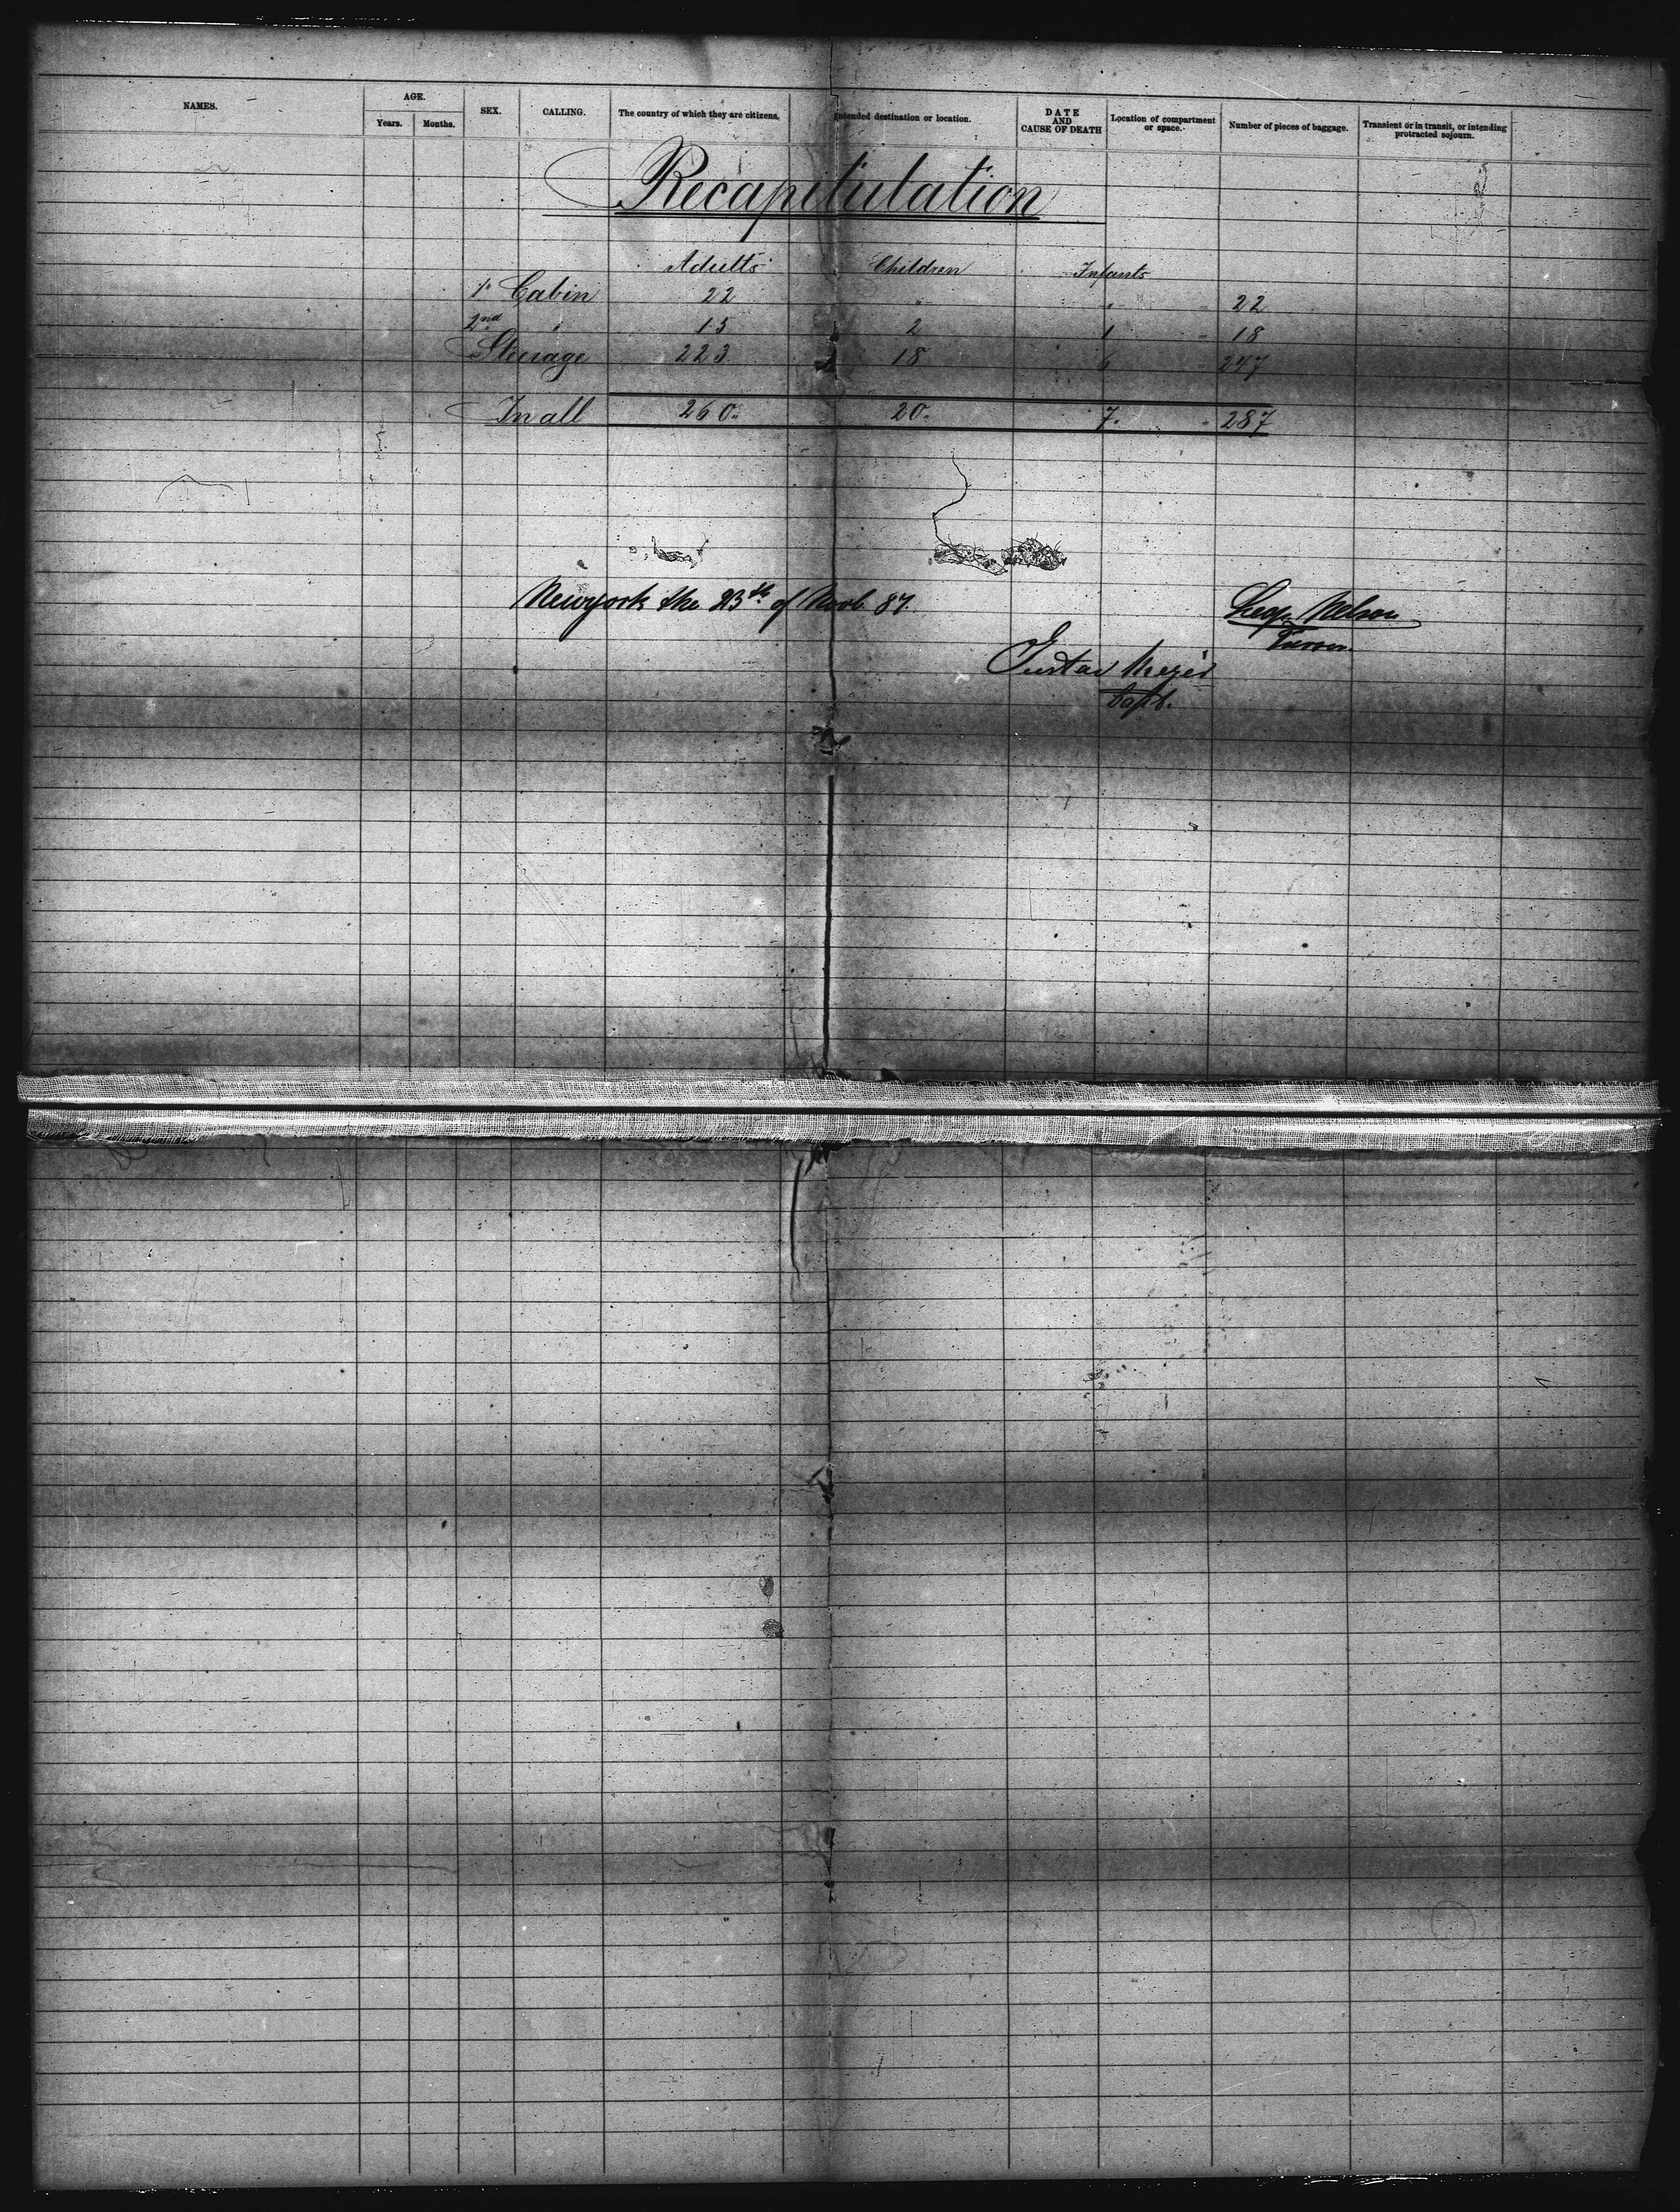 NAMES. AGE. SEX. CALLING. The country of which they are citizens. Intended destination or location. DATE AND CAUSE OF DEATH Location of compartment or space. Number of pieces of baggage. Transient or in transit, or intending protracted sojourn.
Years. Months.
Recapitulation
Adults Children Infants
1st Cabin 22 " " = 22
2nd " 15 2 1 = 18
Steerage 223 18 6 = 247
In all 260. 20. 7. = 287
Newyork the 23th of Novb. 87.
Nelson
Gustav Meyer
Capt.